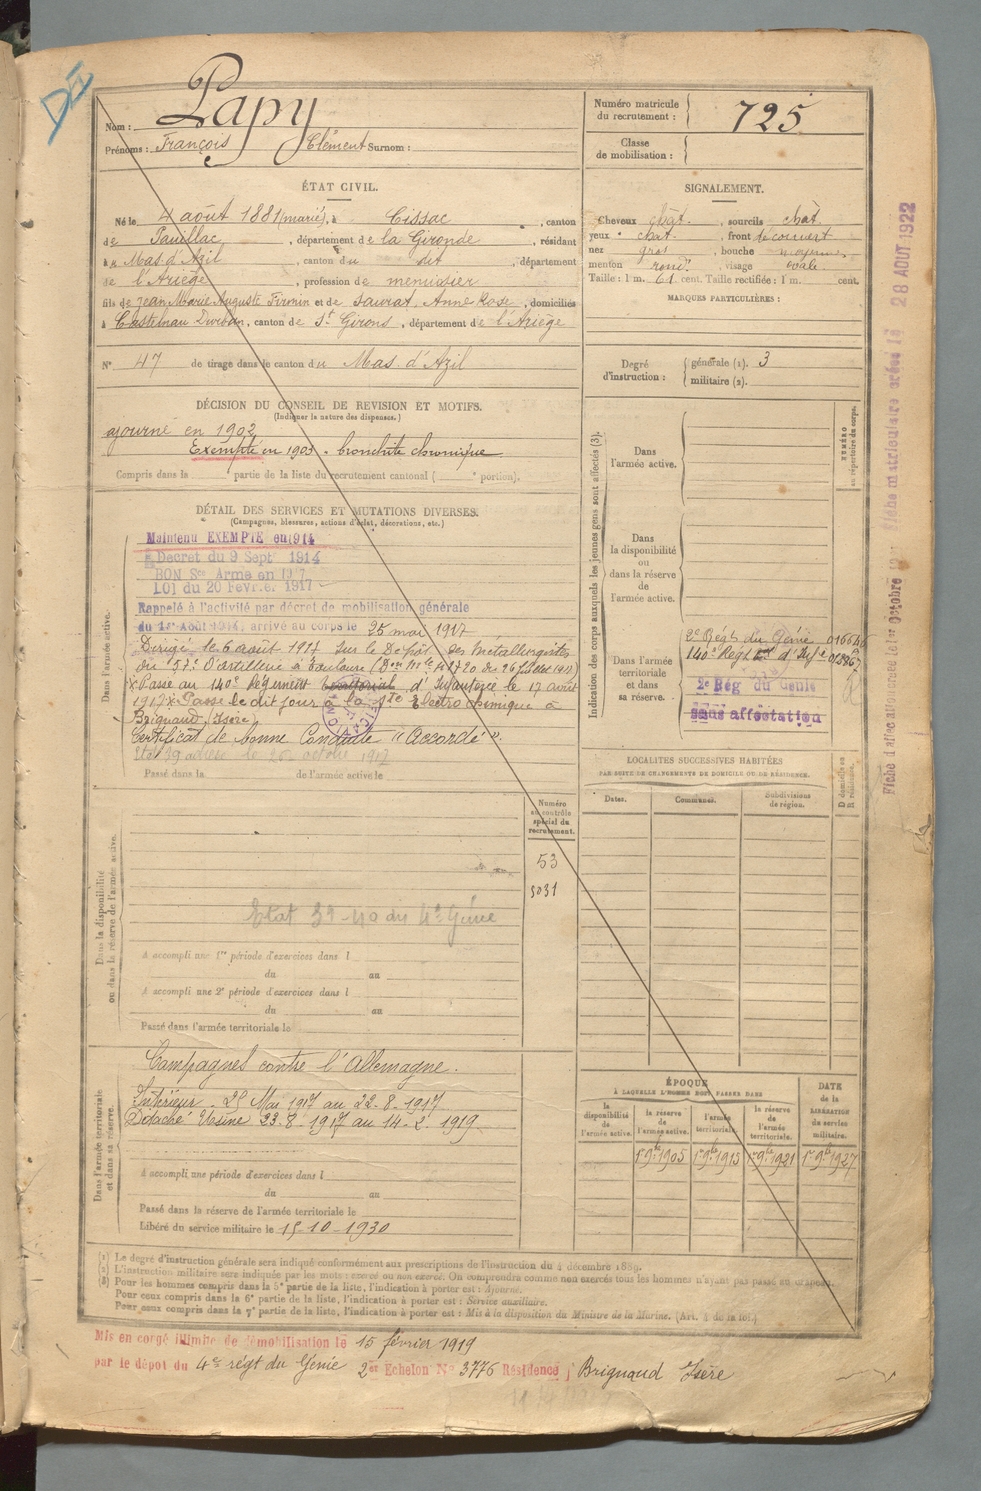 DEI
Nom : Papy
Prénoms : François Clément Surnom :
Numéro matricule du recrutement : 725
Classe de mobilisation :
ÉTAT CIVIL.
Né le 4 août 1881 (marié), à Cissac, canton
de Pauillac, département de la Gironde, résidant
à u Mas d'Azil, canton du dit, département
de l'Ariège, profession de menuisier
fils de Jean Marie Auguste Firmin et de Saurat, Anne Rose, domiciliés
à Castelnau Durban, canton de St Girons, département de l'Ariège
N° 47 de tirage dans le canton du Mas d'Azil
SIGNALEMENT.
Cheveux chât., sourcils chât.
yeux chat., front découvert
nez gros, bouche moyenne
menton rond, visage ovale.
Taille : 1 m. 61 cent. Taille rectifiée : 1 m. cent.
MARQUES PARTICULIÈRES :
Degré d'instruction : générale (1). 3
militaire (2).
DÉCISION DU CONSEIL DE REVISION ET MOTIFS.
(Indiquer la nature des dispenses.)
ajourné en 1902
Exempté en 1903. bronchite chronique
Compris dans la partie de la liste du recrutement cantonal ( portion).
DÉTAIL DES SERVICES ET MUTATIONS DIVERSES.
(Campagnes, blessures, actions d'éclat, décorations, etc.)
Dans l'armée active.
Maintenu EXEMPTE en 1914
Décret du 9 Sept 1914
BON Sce Armé en 1917
LOI du 20 Fevrier 1917
Rappelé à l'activité par décret de mobilisation générale
du 1er Août 1914, arrivé au corps le 25 mai 1917
Dirigé le 6 août 1917 sur le Dépôt des Métallurgistes
du 57e d'artillerie à Toulouse
Passé au 140e Régiment territorial d'Infanterie le 17 août
1917 x Passé le dit jour à la Sté Electro chimique à
Brignoud, Isère
Certificat de bonne Conduite "Accordé".
Passé dans la de l'armée active le
Indication des corps auxquels les jeunes gens sont affectés (3).
NUMÉRO au répertoire du corps.
Dans l'armée active.
Dans la disponibilité ou dans la réserve de l'armée active.
Dans l'armée territoriale et dans sa réserve.
2e Régt du Génie
140e Regt d'Infie
2e Rég du Génie
Sans affectation
LOCALITÉS SUCCESSIVES HABITÉES
PAR SUITE DE CHANGEMENTS DE DOMICILE OU DE RÉSIDENCE.
Dates. Communes. Subdivisions de région. D domicile ou R résidence.
Numéro au contrôle spécial du recrutement.
53
5031
Dans la disponibilité ou dans la réserve de l'armée active.
Etat 39-40 du 4e Génie
A accompli une 1re période d'exercices dans l
du au
A accompli une 2e période d'exercices dans l
du au
Passé dans l'armée territoriale le
Dans l'armée territoriale et dans sa réserve.
Campagnes contre l'Allemagne.
Intérieur. 25 Mai 1917 au 22-8-1917
Détaché Usine 23-8-1917 au 14-2-1919
A accompli une période d'exercices dans l
du au
Passé dans la réserve de l'armée territoriale le
Libéré du service militaire le 15-10-1930
ÉPOQUE
À LAQUELLE L'HOMME DOIT PASSER DANS
la disponibilité de l'armée active.
la réserve de l'armée active.
l'armée territoriale.
la réserve de l'armée territoriale.
DATE de la LIBÉRATION du service militaire.
1er 9bre 1905 1er 9bre 1915 1er 9bre 1921 1er 9bre 1927
(1) Le degré d'instruction générale sera indiqué conformément aux prescriptions de l'instruction du 4 décembre 1889.
(2) L'instruction militaire sera indiquée par les mots : exercé ou non exercé. On comprendra comme non exercés tous les hommes n'ayant pas passé au drapeau.
(3) Pour les hommes compris dans la 5e partie de la liste, l'indication à porter est : Ajourné.
Pour ceux compris dans la 6e partie de la liste, l'indication à porter est : Service auxiliaire.
Pour ceux compris dans la 7e partie de la liste, l'indication à porter est : Mis à la disposition du Ministre de la Marine. (Art. 4 de la loi.)
Mis en congé illimité de démobilisation le 15 février 1919
par le dépôt du 4e régt du Génie 2e Echelon N° 3776 Résidence Brignoud Isère
28 AOUT 1922